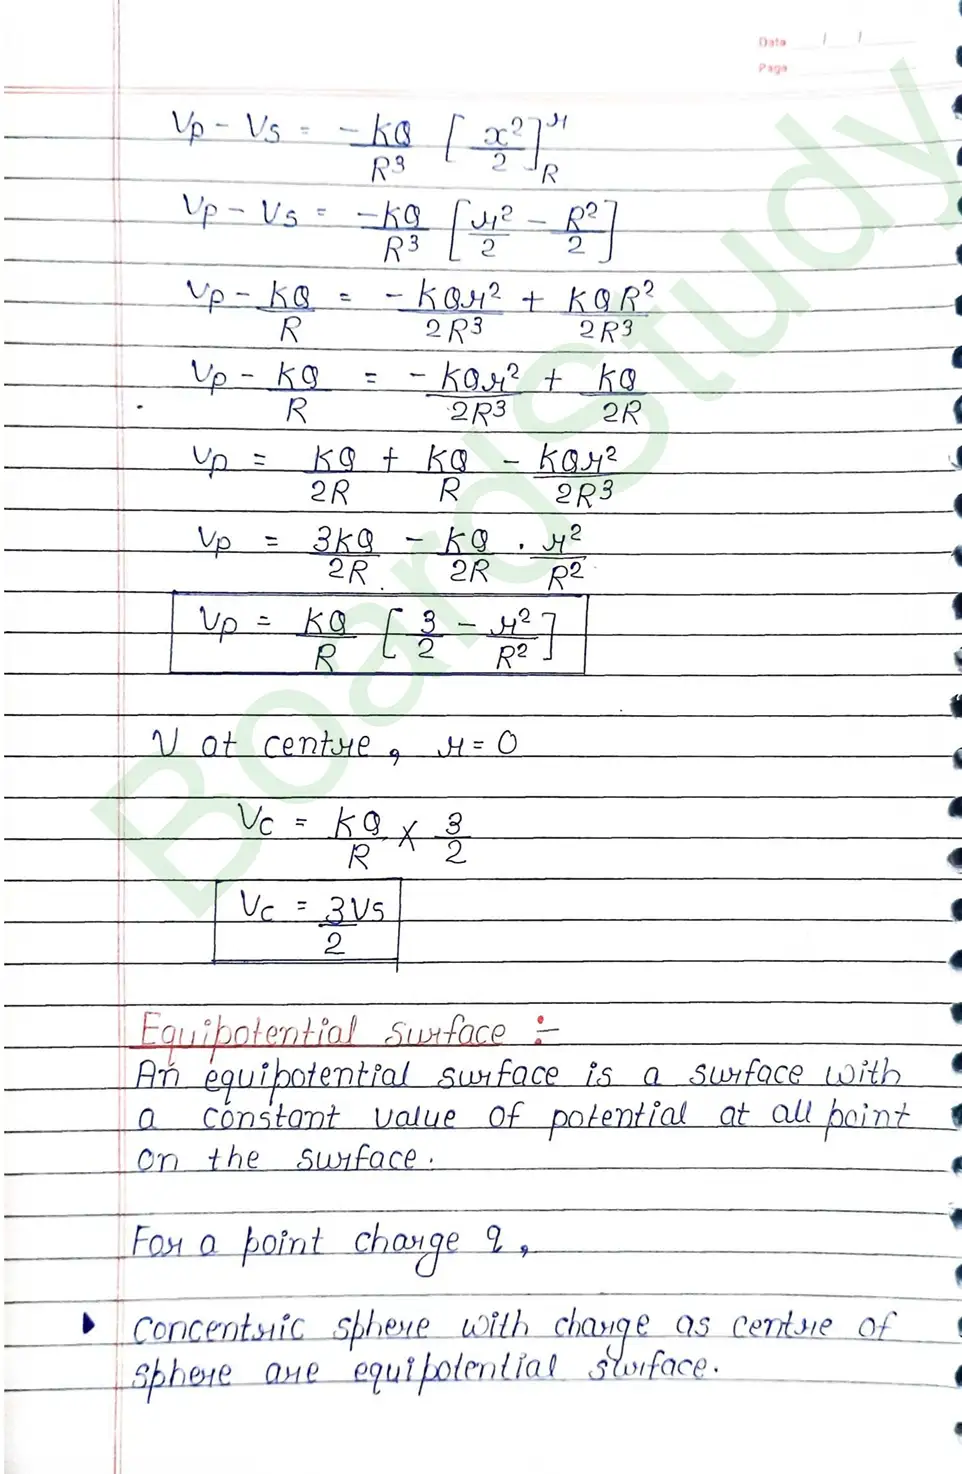 Date / /
Page
Vp - Vs = -KQ/R³ [x²/2]ʳ_R
Vp - Vs = -KQ/R³ [r²/2 - R²/2]
Vp - KQ/R = -KQr²/2R³ + KQR²/2R³
Vp - KQ/R = -KQr²/2R³ + KQ/2R
Vp = KQ/2R + KQ/R - KQr²/2R³
Vp = 3KQ/2R - KQ/2R . r²/R²
Vp = KQ/R [3/2 - r²/R²]
V at centre, r = 0
Vc = KQ/R × 3/2
Vc = 3Vs/2
Equipotential surface :-
An equipotential surface is a surface with
a constant value of potential at all point
on the surface.
For a point charge q,
Concentric sphere with charge as centre of
sphere are equipotential surface.
BoardStudy